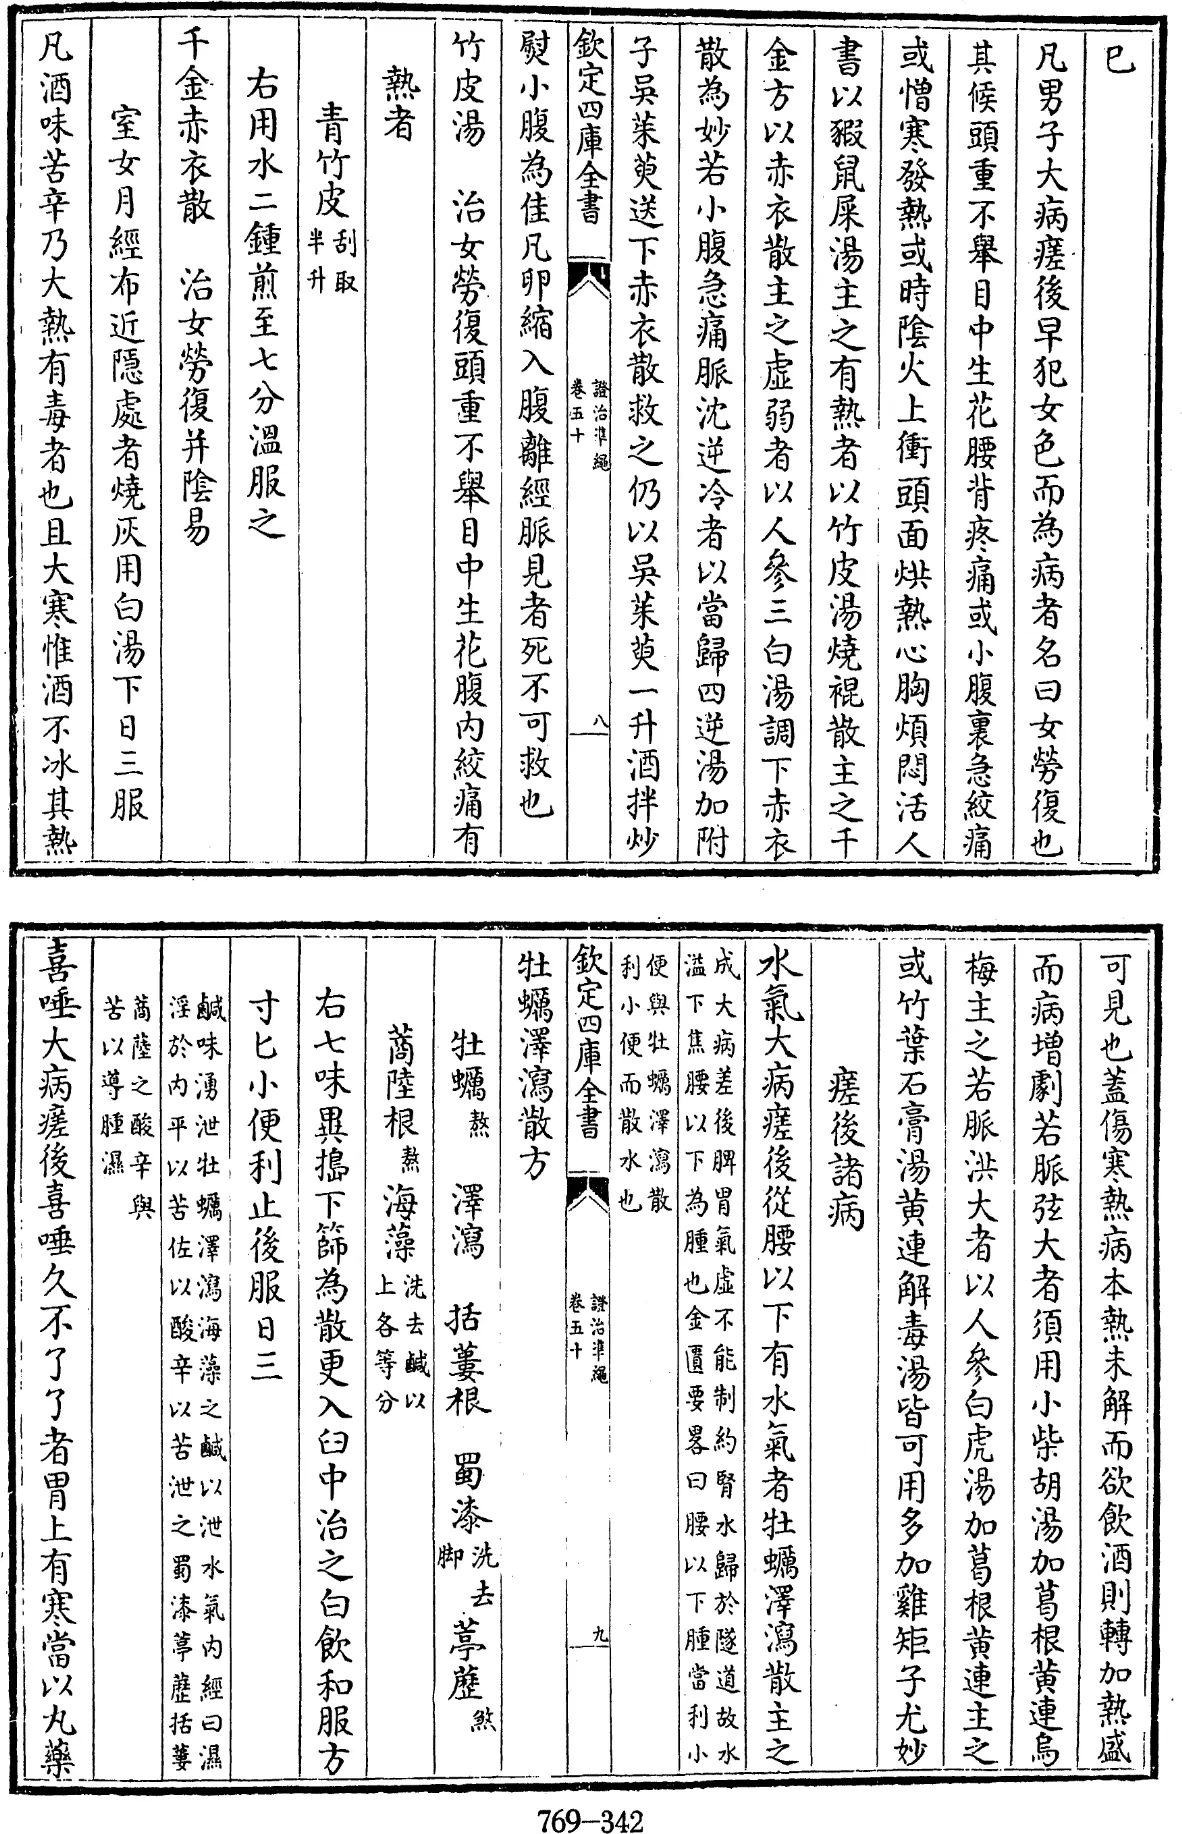 已
凡男子大病瘥後早犯女色而為病者名曰女勞復也
其候頭重不舉目中生花腰背疼痛或小腹裏急絞痛
或憎寒發熱或時陰火上衝頭面烘熱心胸煩悶活人
書以豭鼠屎湯主之有熱者以竹皮湯燒裩散主之千
金方以赤衣散主之虛弱者以人參三白湯調下赤衣
散為妙若小腹急痛脈沈逆冷者以當歸四逆湯加附
子吳茱萸送下赤衣散救之仍以吳茱萸一升酒拌炒
欽定四庫全書
證治準繩
卷五十
八
熨小腹為佳凡卵縮入腹離經脈見者死不可救也
竹皮湯 治女勞復頭重不舉目中生花腹內絞痛有
熱者
青竹皮刮取半升
右用水二鍾煎至七分溫服之
千金赤衣散 治女勞復并陰易
室女月經布近隱處者燒灰用白湯下日三服
凡酒味苦辛乃大熱有毒者也且大寒惟酒不冰其熱
可見也蓋傷寒熱病本熱未解而欲飲酒則轉加熱盛
而病增劇若脈弦大者須用小柴胡湯加葛根黃連烏
梅主之若脈洪大者以人參白虎湯加葛根黃連主之
或竹葉石膏湯黃連解毒湯皆可用多加雞矩子尤妙
瘥後諸病
水氣大病瘥後從腰以下有水氣者牡蠣澤瀉散主之
成大病差後脾胃氣虛不能制約腎水歸於隧道故水
溢下焦腰以下為腫也金匱要畧曰腰以下腫當利小
便與牡蠣澤瀉散
利小便而散水也
欽定四庫全書
證治準繩
卷五十
九
牡蠣澤瀉散方
牡蠣熬 澤瀉 括蔞根 蜀漆洗去脚 葶藶熬
蔏陸根熬 海藻洗去鹹以上各等分
右七味異搗下篩為散更入臼中治之白飲和服方
寸匕小便利止後服日三
鹹味湧泄牡蠣澤瀉海藻之鹹以泄水氣內經曰濕
淫於內平以苦佐以酸辛以苦泄之蜀漆葶藶括蔞
蔏陸之酸辛與
苦以導腫濕
喜唾大病瘥後喜唾久不了了者胃上有寒當以丸藥
769-342